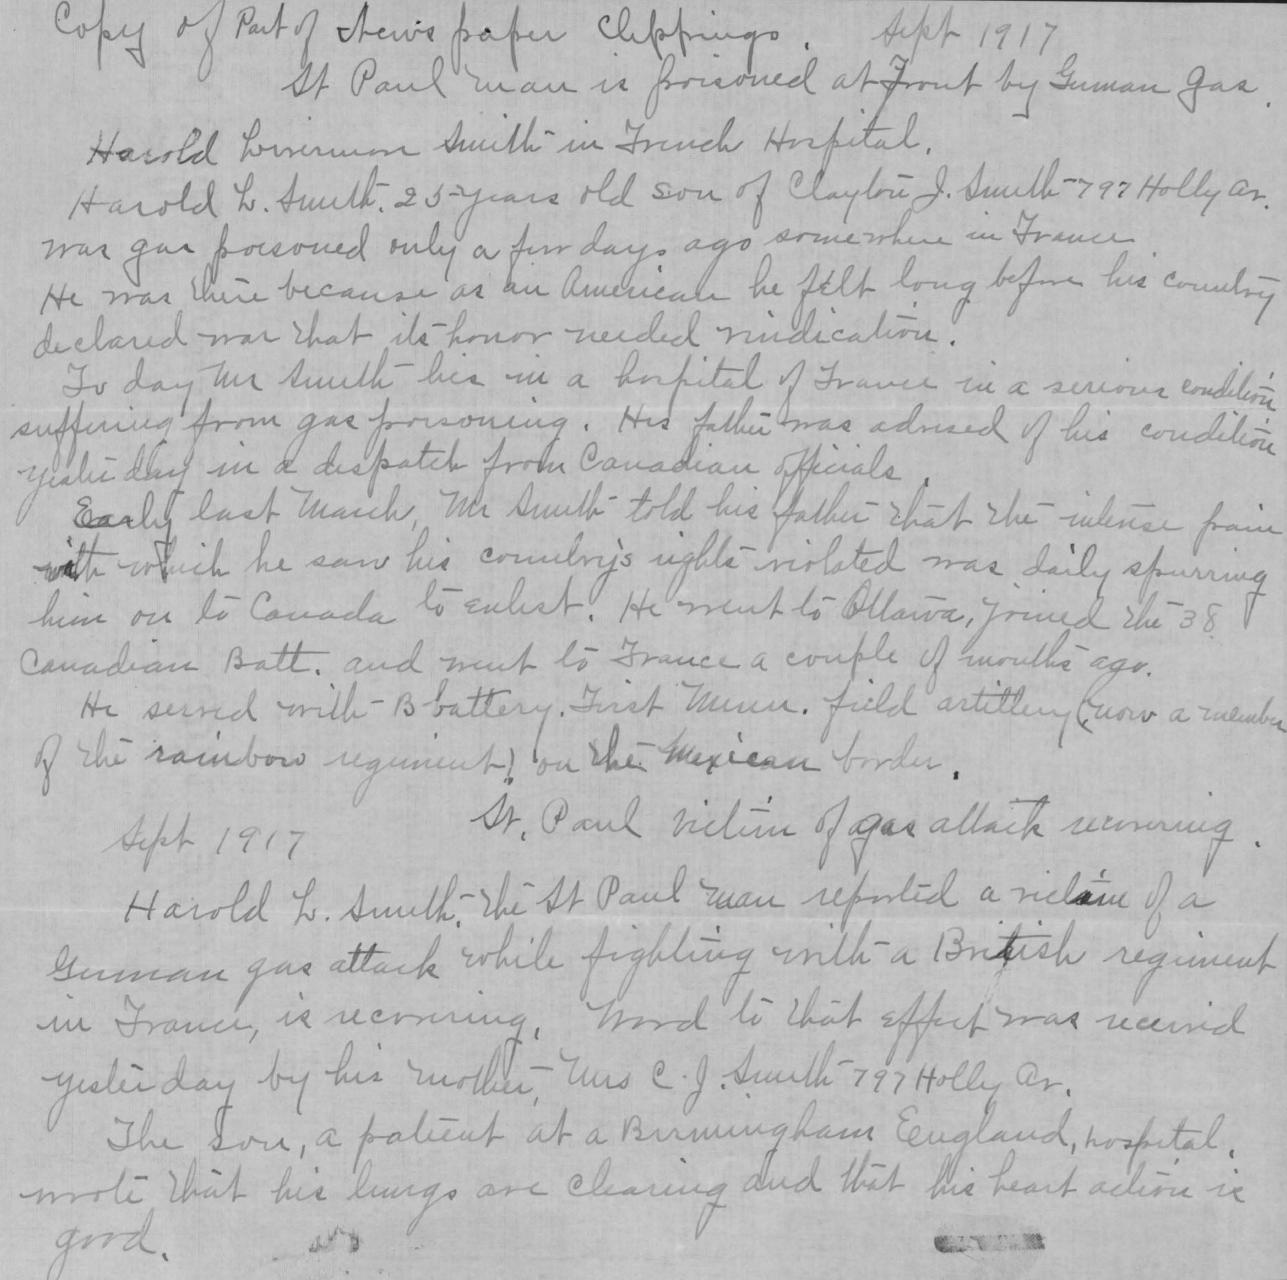 Copy of Part of News paper Clippings. Sept 1917
St Paul man is poisoned at Front by German gas.
Harold Livermon Smith in French Hospital.
Harold L. Smith. 25 years old son of Clayton J. Smith 797 Holly Av.
was gas poisoned only a few days ago somewhere in France
He was there because as an American he felt long before his country
declared war that its honor needed vindication.
To day Mr Smith lies in a hospital of France in a serious condition
suffering from gas poisoning. His father was advised of his condition
yesterday in a dispatch from Canadian officials.
Early last March, Mr Smith told his father that the intense pain
with which he saw his country's rights violated was daily spurring
him on to Canada to enlist. He went to Ottawa, joined the 38
Canadian Batt. and went to France a couple of months ago.
He served with B battery. First Minn. field artillery (now a member
of the rainbow regiment) on the Mexican border.
St. Paul victim of gas attack recovering.
Sept 1917
Harold L. Smith, the St Paul man reported a victim of a
German gas attack while fighting with a British regiment
in France, is recovering. Word to that effect was received
yesterday by his mother, Mrs C. J. Smith 797 Holly Av.
The son, a patient at a Birmingham England, hospital.
wrote that his lungs are clearing and that his heart action is
good.